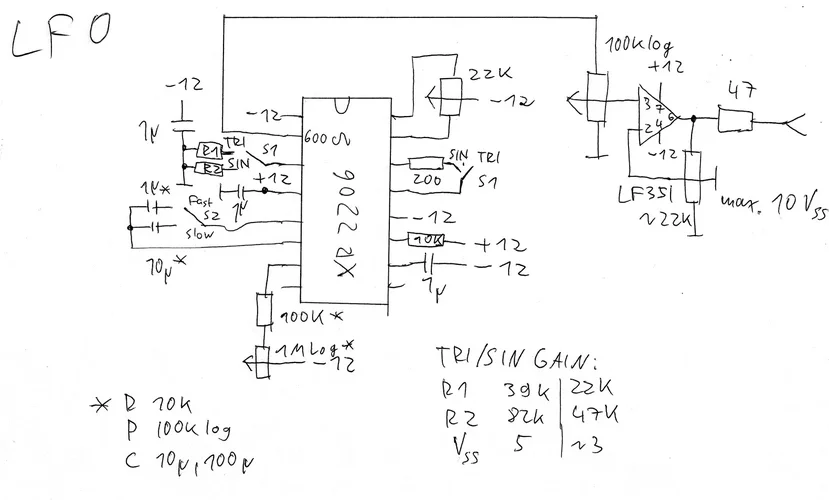 LFO
100K log
+12
-12
22K
47
-12
-12
3 7
6
1µ
R1
TRI
S1
600Ω
2 4
R2
SIN
SIN TRI
-12
+12
200
S1
LF351
max. 10 Vss
1µ
~22K
1µ*
Fast
S2
XR 2206
-12
slow
10K
+12
10µ*
-12
1µ
100K*
1M Log*
-12
TRI/SIN GAIN:
R1 39K | 22K
* R 10K
R2 82K | 47K
P 100K log
Vss 5 | ~3
C 10µ, 100µ